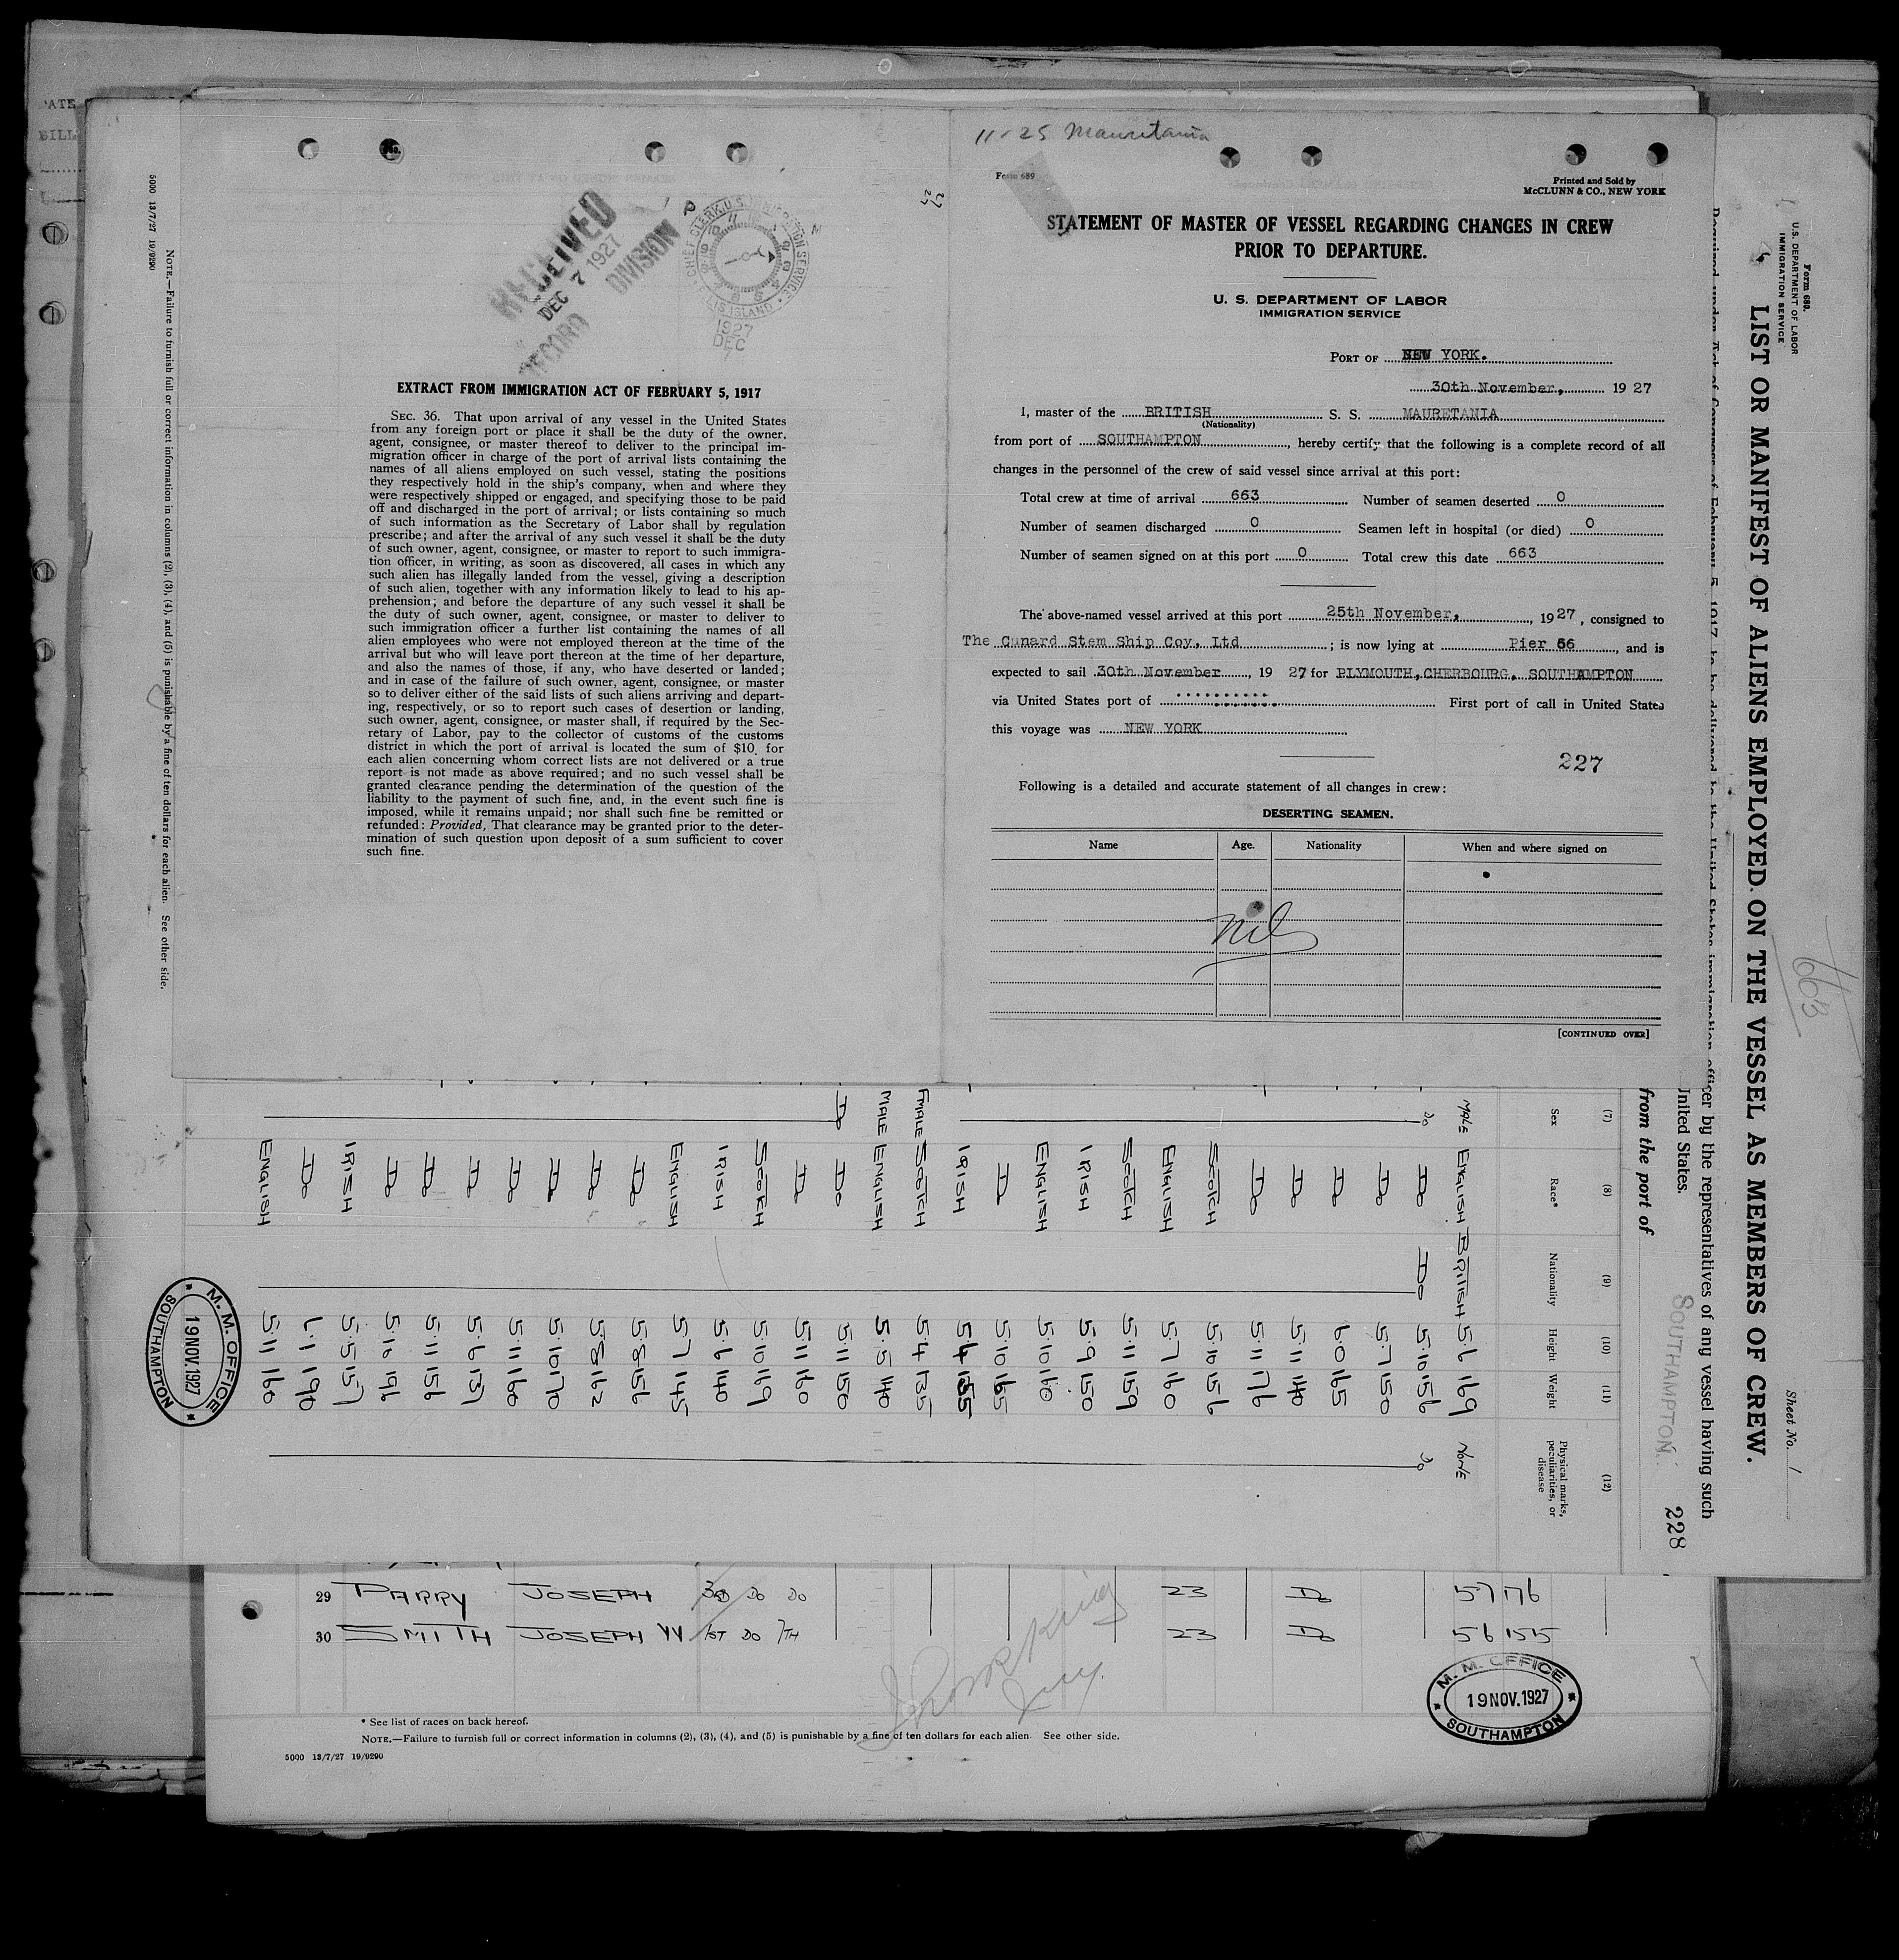 11-25 Mauretania
Form 689
Printed and Sold by
McCLUNN & CO., NEW YORK
STATEMENT OF MASTER OF VESSEL REGARDING CHANGES IN CREW
PRIOR TO DEPARTURE.
U. S. DEPARTMENT OF LABOR
IMMIGRATION SERVICE
PORT OF NEW YORK.
30th November, 1927
I, master of the BRITISH S. S. MAURETANIA
(Nationality)
from port of SOUTHAMPTON, hereby certify that the following is a complete record of all
changes in the personnel of the crew of said vessel since arrival at this port:
Total crew at time of arrival 663 Number of seamen deserted 0
Number of seamen discharged 0 Seamen left in hospital (or died) 0
Number of seamen signed on at this port 0 Total crew this date 663
The above-named vessel arrived at this port 25th November, 1927, consigned to
The Cunard Stem Ship Coy, Ltd; is now lying at Pier 56, and is
expected to sail 30th November, 1927 for PLYMOUTH, CHERBOURG, SOUTHAMPTON
via United States port of First port of call in United States
this voyage was NEW YORK
227
Following is a detailed and accurate statement of all changes in crew:
DESERTING SEAMEN.
Name Age. Nationality When and where signed on
Nil
[CONTINUED OVER]
RECEIVED
DEC 7 1927
RECORD DIVISION
CHIEF CLERK, U.S. IMMIGRATION SERVICE
ELLIS ISLAND
1927
DEC
7
EXTRACT FROM IMMIGRATION ACT OF FEBRUARY 5, 1917
SEC. 36. That upon arrival of any vessel in the United States
from any foreign port or place it shall be the duty of the owner,
agent, consignee, or master thereof to deliver to the principal im-
migration officer in charge of the port of arrival lists containing the
names of all aliens employed on such vessel, stating the positions
they respectively hold in the ship's company, when and where they
were respectively shipped or engaged, and specifying those to be paid
off and discharged in the port of arrival; or lists containing so much
of such information as the Secretary of Labor shall by regulation
prescribe; and after the arrival of any such vessel it shall be the duty
of such owner, agent, consignee, or master to report to such immigra-
tion officer, in writing, as soon as discovered, all cases in which any
such alien has illegally landed from the vessel, giving a description
of such alien, together with any information likely to lead to his ap-
prehension; and before the departure of any such vessel it shall be
the duty of such owner, agent, consignee, or master to deliver to
such immigration officer a further list containing the names of all
alien employees who were not employed thereon at the time of the
arrival but who will leave port thereon at the time of her departure,
and also the names of those, if any, who have deserted or landed;
and in case of the failure of such owner, agent, consignee, or master
so to deliver either of the said lists of such aliens arriving and depart-
ing, respectively, or so to report such cases of desertion or landing,
such owner, agent, consignee, or master shall, if required by the Sec-
retary of Labor, pay to the collector of customs of the customs
district in which the port of arrival is located the sum of $10 for
each alien concerning whom correct lists are not delivered or a true
report is not made as above required; and no such vessel shall be
granted clearance pending the determination of the question of the
liability to the payment of such fine, and, in the event such fine is
imposed, while it remains unpaid; nor shall such fine be remitted or
refunded: Provided, That clearance may be granted prior to the deter-
mination of such question upon deposit of a sum sufficient to cover
such fine.
Form 680.
U. S. DEPARTMENT OF LABOR
IMMIGRATION SERVICE
Sheet No. 1
663
LIST OR MANIFEST OF ALIENS EMPLOYED ON THE VESSEL AS MEMBERS OF CREW.
officer by the representatives of any vessel having such
United States.
from the port of SOUTHAMPTON.
228
(7) (8) (9) (10) (11) (12)
Sex Race* Nationality Height Weight Physical marks, peculiarities, or disease
MALE ENGLISH BRITISH 5.6 169 NONE
Do Do Do 5.10 156 Do
Do 5.7 150
Do 6.0 165
Do 5.11 140
Do 5.11 176
SCOTCH 5.10 156
ENGLISH 5.7 160
SCOTCH 5.11 159
IRISH 5.9 150
ENGLISH 5.10 160
Do 5.10 165
IRISH 5.4 155
FMALE SCOTCH 5.4 135
MALE ENGLISH 5.5 140
Do Do 5.11 150
Do 5.11 160
SCOTCH 5.10 169
IRISH 5.6 140
ENGLISH 5.7 145
Do 5.8 156
Do 5.8 162
Do 5.10 170
Do 5.11 160
Do 5.6 137
Do 5.11 156
Do 5.10 196
IRISH 5.5 157
Do 6.1 190
ENGLISH 5.11 160
M. M. OFFICE
19 NOV. 1927
SOUTHAMPTON
NOTE.—Failure to furnish full or correct information in columns (2), (3), (4), and (5) is punishable by a fine of ten dollars for each alien. See other side.
5000 13/7/27 19/9290
29 PARRY JOSEPH 3RD Do Do 23 Do 57 176
30 SMITH JOSEPH W 1ST DO 7TH 23 Do 56 155
M. M. OFFICE
19 NOV. 1927
SOUTHAMPTON
* See list of races on back hereof.
NOTE.—Failure to furnish full or correct information in columns (2), (3), (4), and (5) is punishable by a fine of ten dollars for each alien. See other side.
5000 13/7/27 19/9290